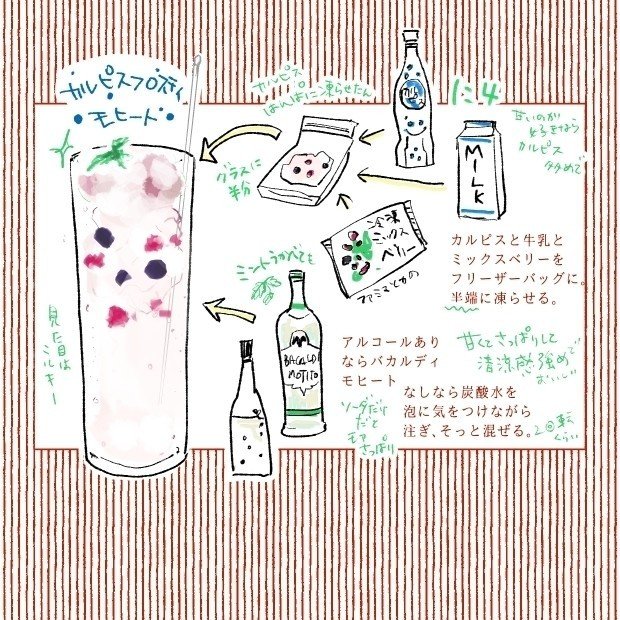 カルピスフロスティ
モヒート
カルピス
はんぱに凍らせたん
カルピス
に4
甘いのが
好きなら
カルピス
多めで
MILK
グラスに
半分
冷凍
ミックス
ベリー
ファミマとかの
カルピスと牛乳と
ミックスベリーを
フリーザーバッグに。
半端に凍らせる。
ミントうかべても
見た目は
ミルキー
BACALDI
MOJITO
アルコールあり
ならバカルディ
モヒート
なしなら炭酸水を
泡に気をつけながら
注ぎ、そっと混ぜる。
2回転
くらい
ソーダだけ
だと
さっぱり
甘くてさっぱりして
清涼感強めで
おいしい